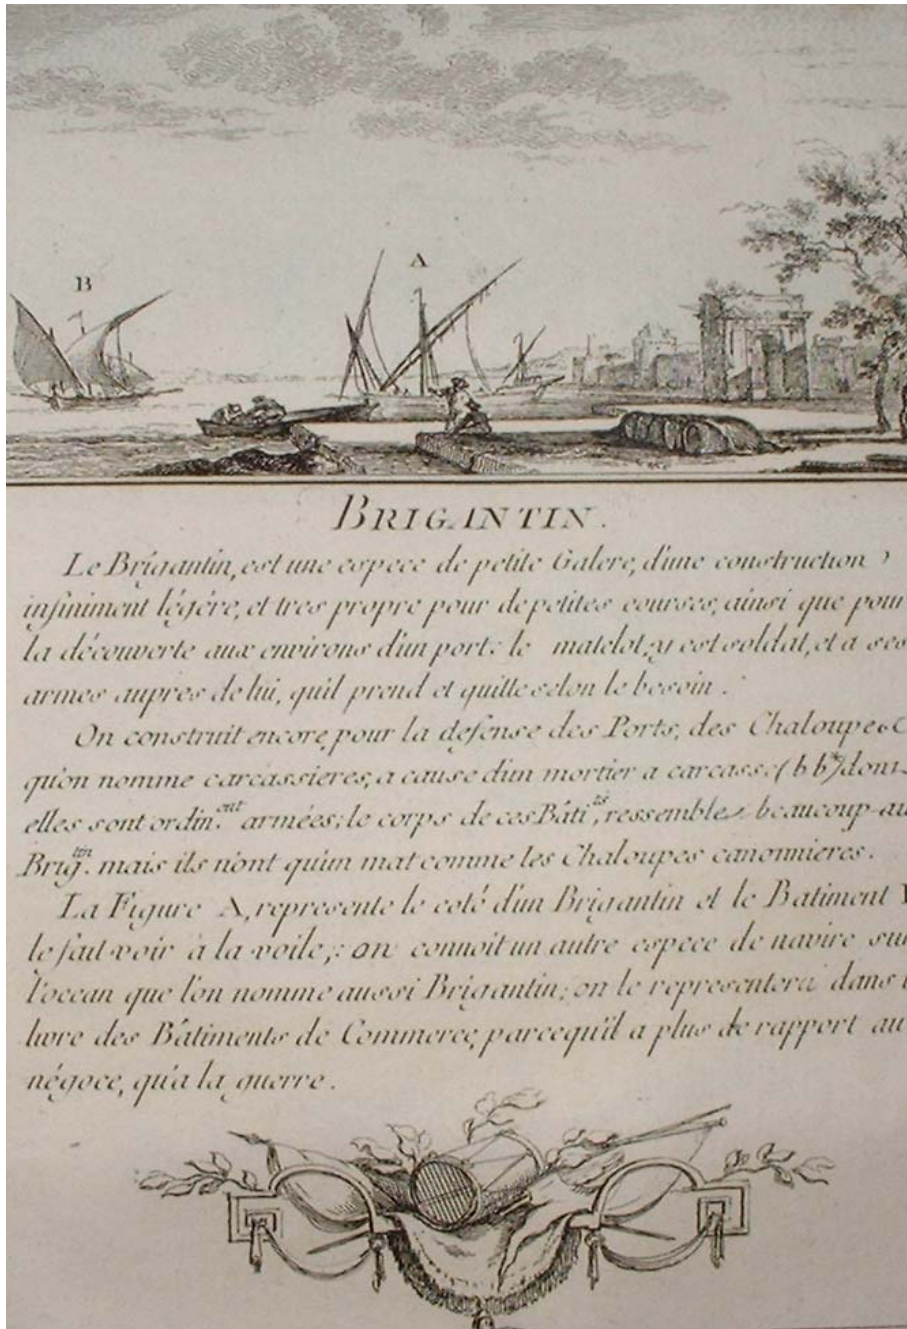 B
A
BRIGANTIN.
Le Brigantin, est une espece de petite Galere, d'une construction
infiniment légére, et tres propre pour de petites courses, ainsi que pour
la découverte aux environs d'un port: le matelot, y est soldat, et a ses
armes aupres de lui, qu'il prend et quitte selon le besoin.
On construit encore, pour la defense des Ports, des Chaloupes
qu'on nomme carcassieres, a cause d'un mortier a carcasse (bb*) dont
elles sont ordin.ent armées; le corps de ces Bâti.ts, ressemble beaucoup au
Brig.tin mais ils n'ont qu'un mat comme les Chaloupes canonnieres.
La Figure A, represente le coté d'un Brigantin et le Batiment
le fait voir à la voile; on connoit un autre espece de navire sur
l'ocean que l'on nomme aussi Brigantin; on le representera dans
livre des Bâtiments de Commerce, parcequ'il a plus de rapport au
négoce, qu'a la guerre.